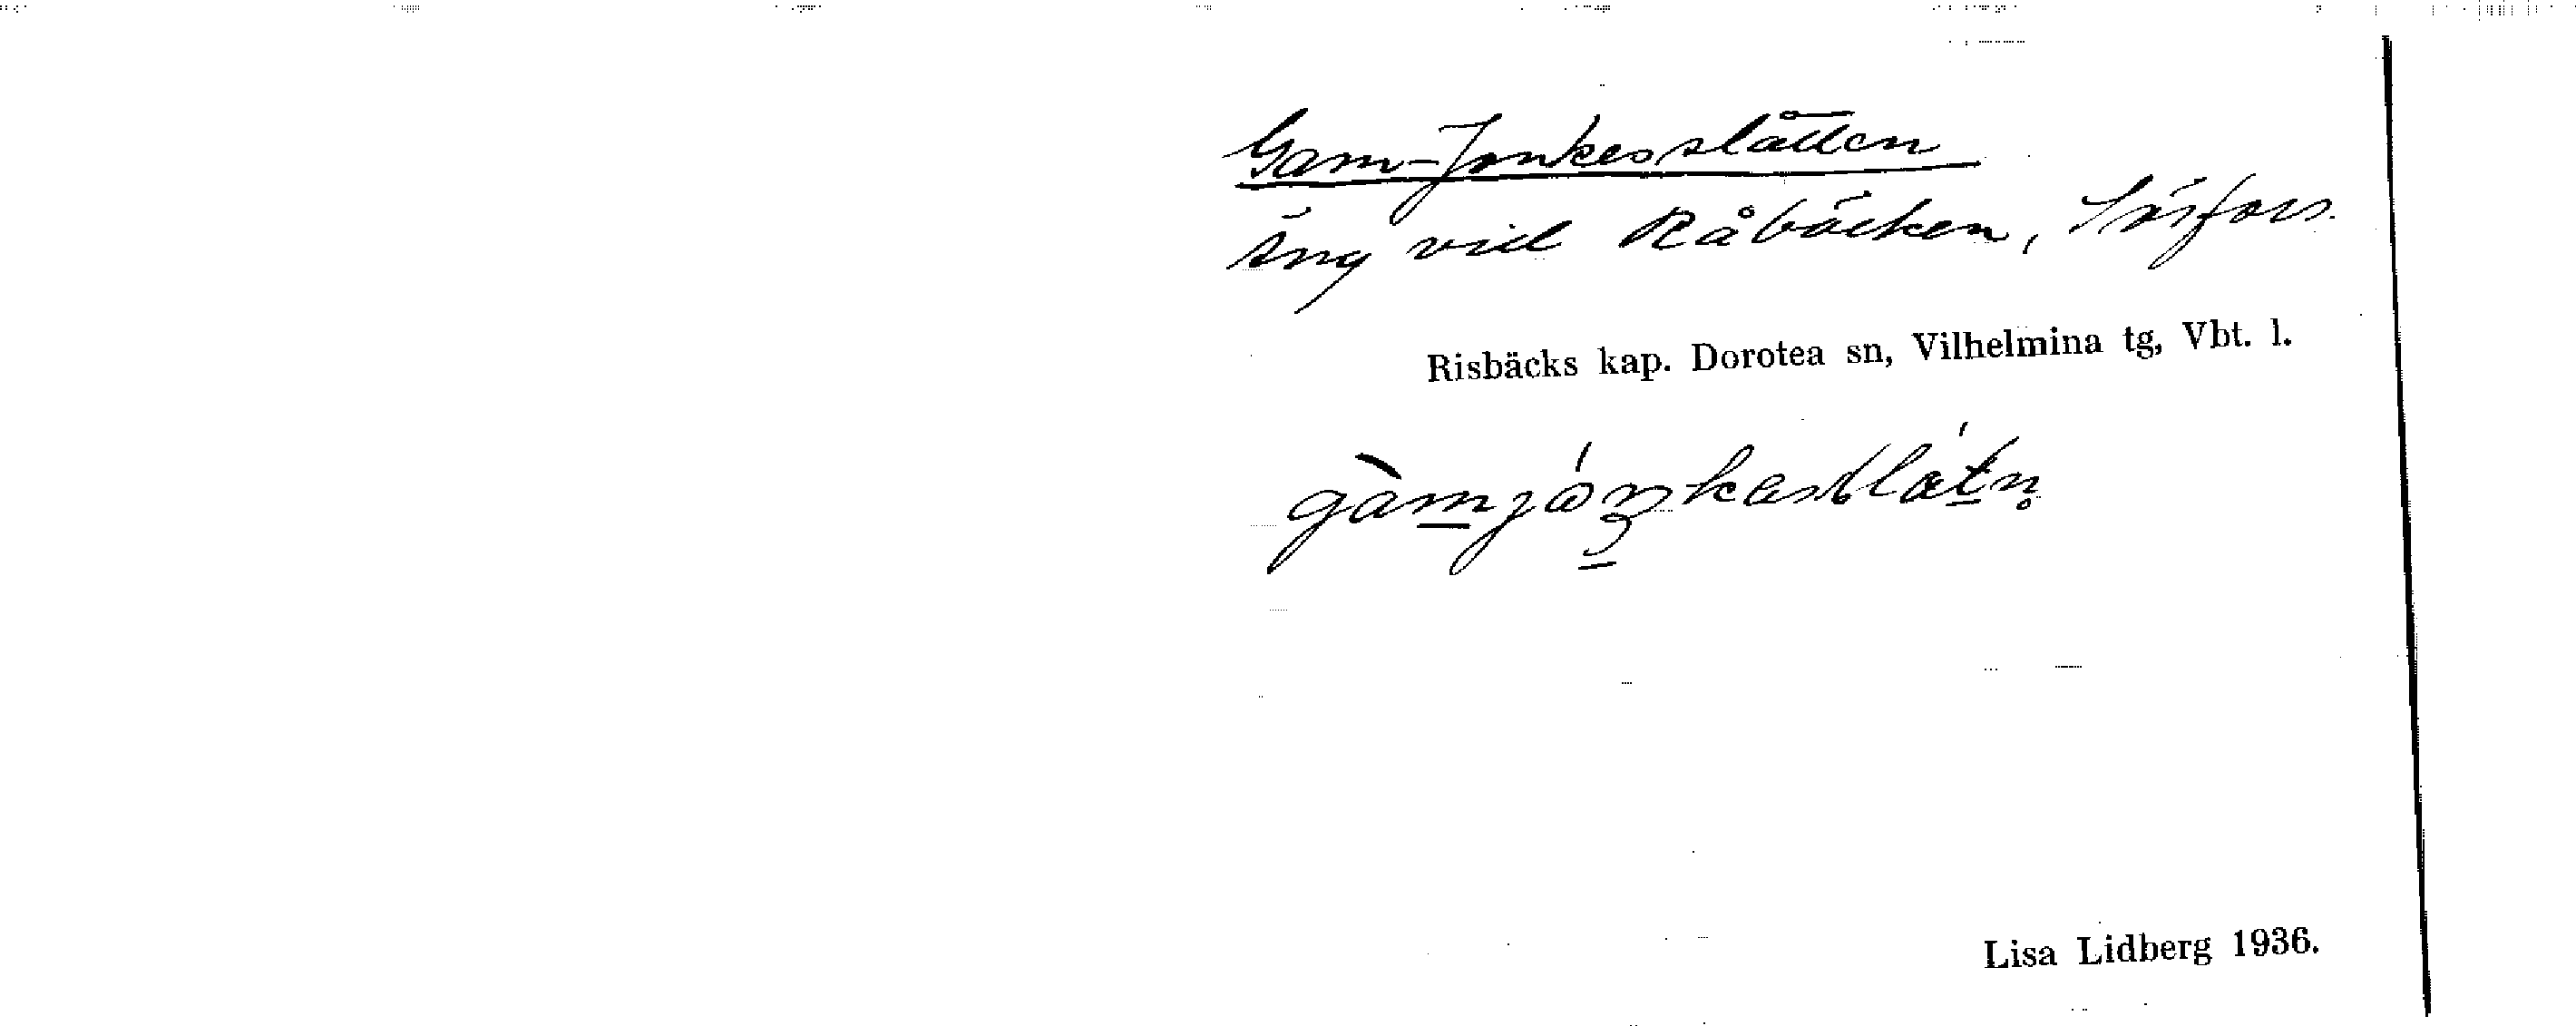 Gam-Jonkesslåtten
Äng vid Råbäcken,
Risbäcks kap. Dorotea sn, Vilhelmina tg, Vbt. l.
Lisa Lidberg 1936.